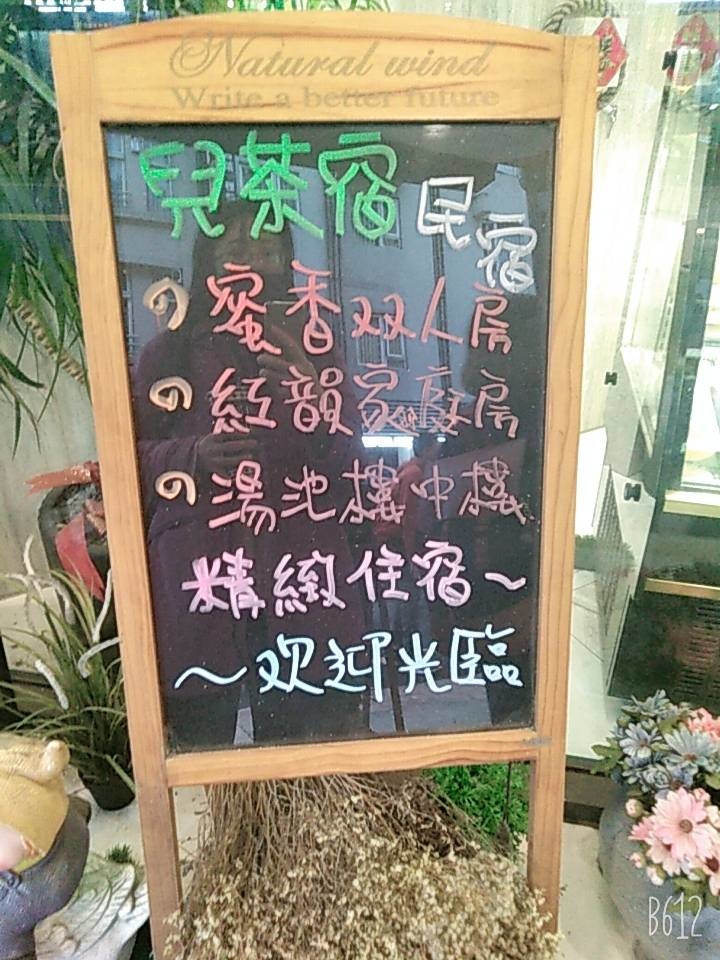 Natural wind
Write a better future
兒茶宿民宿
蜜香双人房
紅韻家庭房
湯池樓中樓
精緻住宿~
~欢迎光臨
B612